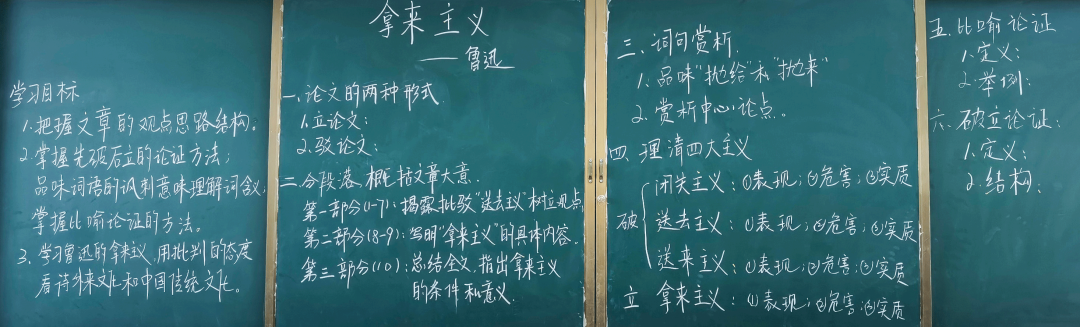 学习目标
1.把握文章的观点思路结构。
2.掌握先破后立的论证方法;
品味词语的讽刺意味理解词含义,
掌握比喻论证的方法。
3.学习鲁迅的拿来主义,用批判的态度
看待外来文化和中国传统文化。
拿来主义
——鲁迅
一、论文的两种形式
1.立论文:
2.驳论文:
二、分段落、概括文章大意.
第一部分(1-7):揭露批驳"送去主义"树立观点
第二部分(8-9):写明"拿来主义"的具体内容.
第三部分(10):总结全文,指出拿来主义
的条件和意义.
三、词句赏析.
1.品味"抛给"和"抛来"
2.赏析中心论点。
四.理清四大主义
破
闭关主义:①表现;②危害;③实质
送去主义:①表现;②危害;③实质
送来主义:①表现;②危害;③实质
立 拿来主义:①表现;②危害;③实质
五.比喻论证
1.定义:
2.举例:
六.破立论证:
1.定义:
2.结构: